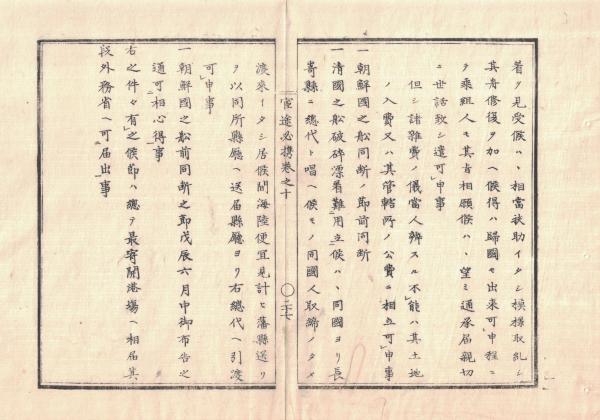 着ヲ見受候ハヽ相當扶助イタシ模樣取乱シ
其舟修復ヲ加ヘ候得ハ歸國モ出來可申程ニ
テ乘組人モ其者相願候ハヽ望ミ通承屆親切
ニ世話致シ遣可申事
但シ諸雜費ノ儀當人辨スル不能ハ其土地
ノ入費又ハ其管轄所ノ公費ニ相立可申事
一朝鮮國之舩同斷ノ節前同斷
一清國之舩破碎漂着難用立候ハヽ同國ヨリ長
嵜縣ニ總代ト唱ヘ候モノ同國人取締ノタメ
宦途必携巻之十
二十七
渡來イタシ居候間海陸便宜見計ヒ藩縣送リ
ヲ以同所縣廳ヘ送屆縣廳ヨリ右總代ヘ引渡
可申事
一朝鮮國之舩前同斷之節戊辰六月中御布告之
通可相心得事
右之件々有之候節ハ總テ最寄開港場ヘ相屆其
段外務省ヘ可屆出事